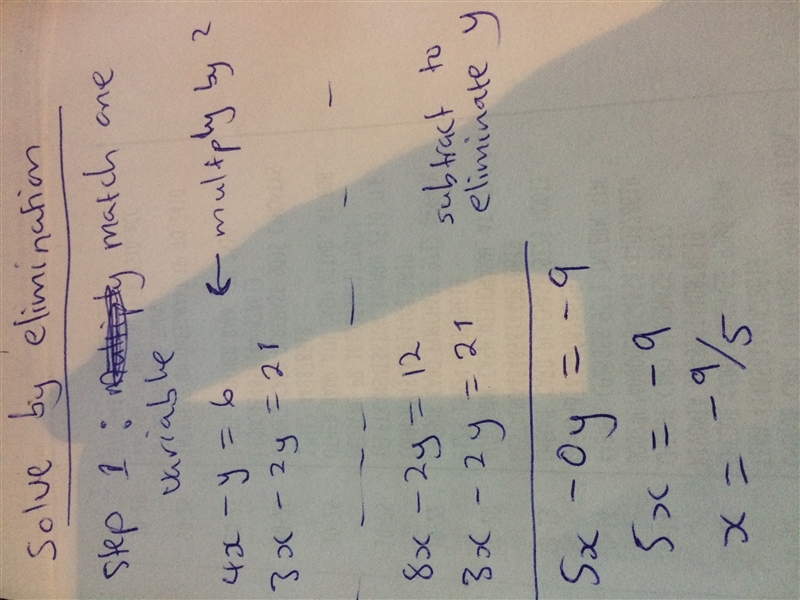 Solve by elimination
Step 1: match one
variable
4x - y = 6 ← multiply by 2
3x - 2y = 21
8x - 2y = 12 subtract to
3x - 2y = 21 eliminate y
5x - 0y = -9
5x = -9
x = -9/5